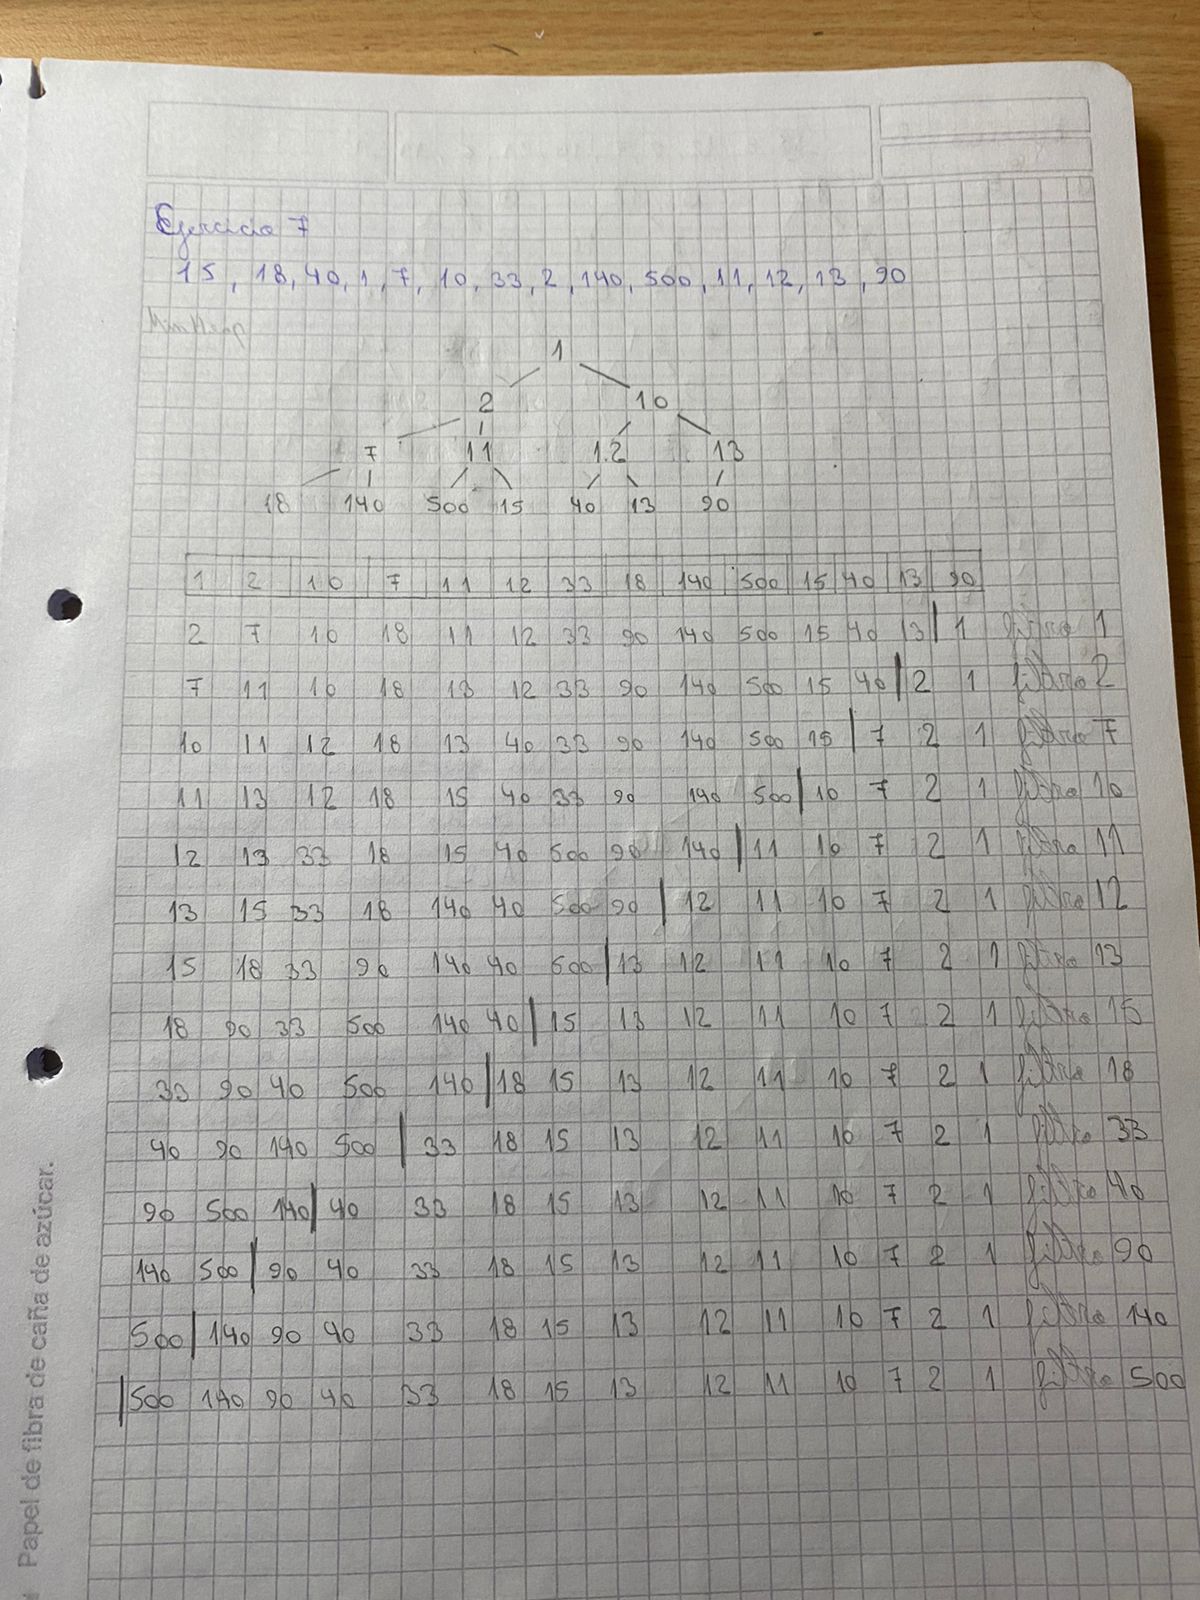 Ejercicio 7
15, 18, 40, 1, 7, 10, 33, 2, 140, 500, 11, 12, 13, 90
MinHeap
1
2 10
7 11 12 13
18 140 500 15 40 13 90
1 2 10 7 11 12 33 18 140 500 15 40 13 90
2 7 10 18 11 12 33 90 140 500 15 40 13 | 1 filtro 1
7 11 10 18 13 12 33 90 140 500 15 40 | 2 1 filtro 2
10 11 12 18 13 40 33 90 140 500 15 | 7 2 1 filtro 7
11 13 12 18 15 40 33 90 140 500 | 10 7 2 1 filtro 10
12 13 33 18 15 40 500 90 140 | 11 10 7 2 1 filtro 11
13 15 33 18 140 40 500 90 | 12 11 10 7 2 1 filtro 12
15 18 33 90 140 40 500 | 13 12 11 10 7 2 1 filtro 13
18 90 33 500 140 40 | 15 13 12 11 10 7 2 1 filtro 15
33 90 40 500 140 | 18 15 13 12 11 10 7 2 1 filtro 18
40 90 140 500 | 33 18 15 13 12 11 10 7 2 1 filtro 33
90 500 140 | 40 33 18 15 13 12 11 10 7 2 1 filtro 40
140 500 | 90 40 33 18 15 13 12 11 10 7 2 1 filtro 90
500 | 140 90 40 33 18 15 13 12 11 10 7 2 1 filtro 140
| 500 140 90 40 33 18 15 13 12 11 10 7 2 1 filtro 500
Papel de fibra de caña de azúcar.